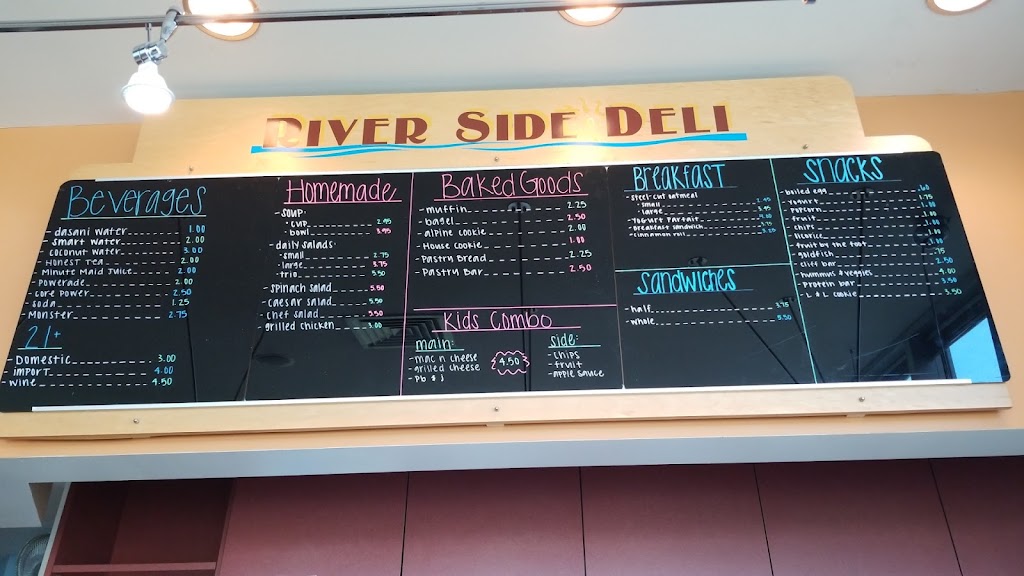 RIVER SIDE DELI
Beverages
- dasani water 1.00
- smart water 2.00
- coconut water 3.00
- Honest Tea 2.00
- Minute Maid Juice 2.00
- Powerade 2.00
- core power 2.50
- soda 1.25
- Monster 2.75
21+
- Domestic 3.00
- import 4.00
- wine 4.50
Homemade
- soup:
• cup 2.95
• bowl 3.95
- daily salads:
- small 2.75
- large 3.75
- trio 5.50
- spinach salad 5.50
- caesar salad 5.50
- chef salad 5.50
- grilled chicken
Baked Goods
- muffin 2.25
- bagel 2.50
- alpine cookie 2.00
- House cookie 1.00
- Pastry Bread 2.25
- Pastry Bar 2.50
Kids Combo
main:
- mac n cheese
- grilled cheese
- Pb & J
4.50
side:
- chips
- fruit
- apple sauce
Breakfast
- steel cut oatmeal
• small
• large
- Yogurt Parfait
- Breakfast sandwich
- cinnamon roll
Sandwiches
- half
- whole 5.50
Snacks
- boiled egg .60
- yogurt
- popcorn
- fruit
- chips
- licorice
- fruit by the foot
- goldfish .75
- cliff bar 2.50
- hummus & veggies 4.00
- protein bar 3.50
- L & L cookie 3.50